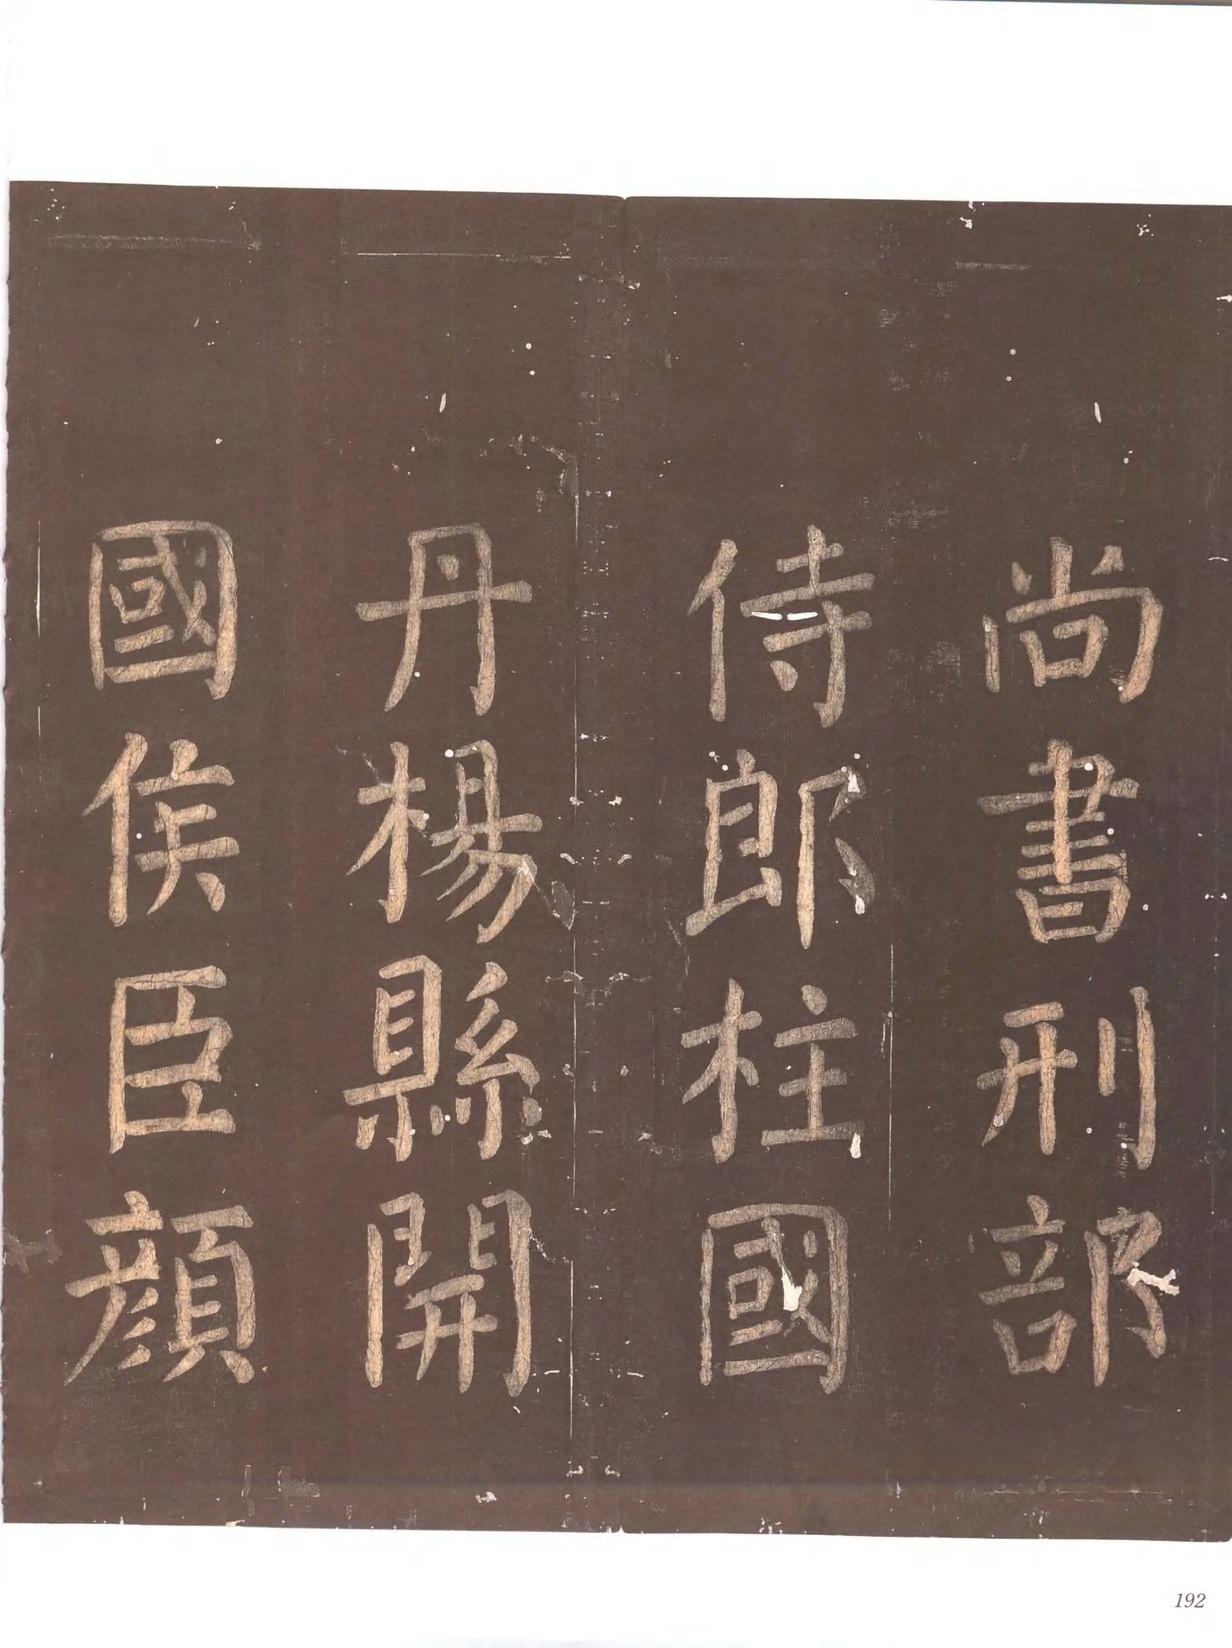 尚書刑部
侍郎柱國
丹楊縣開
國侯臣顏
192